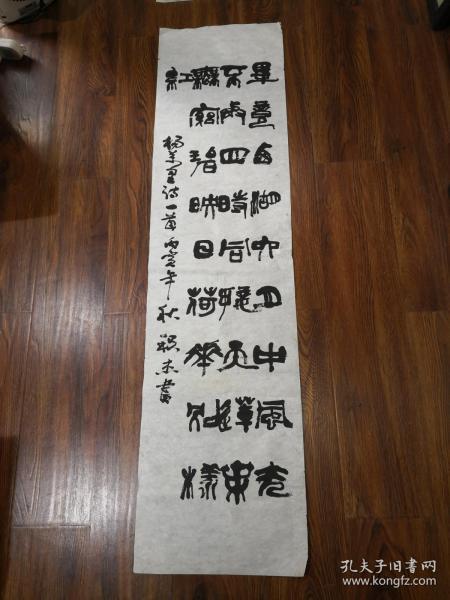 畢竟西湖六月中風光
不與四時同接天蓮葉
無窮碧映日荷花別樣
紅
楊萬里詩一首丙寅年秋書
孔夫子旧书网
www.kongfz.com